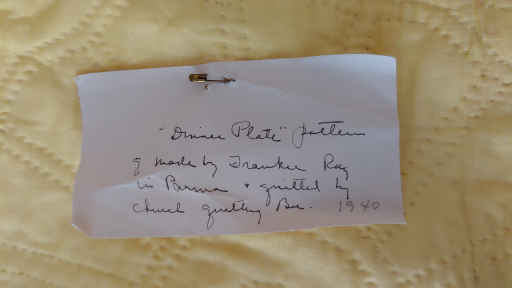 "Dinner Plate" pattern
made by Frankie Ray
in Burma & quilted by
church quilting Bee. 1940